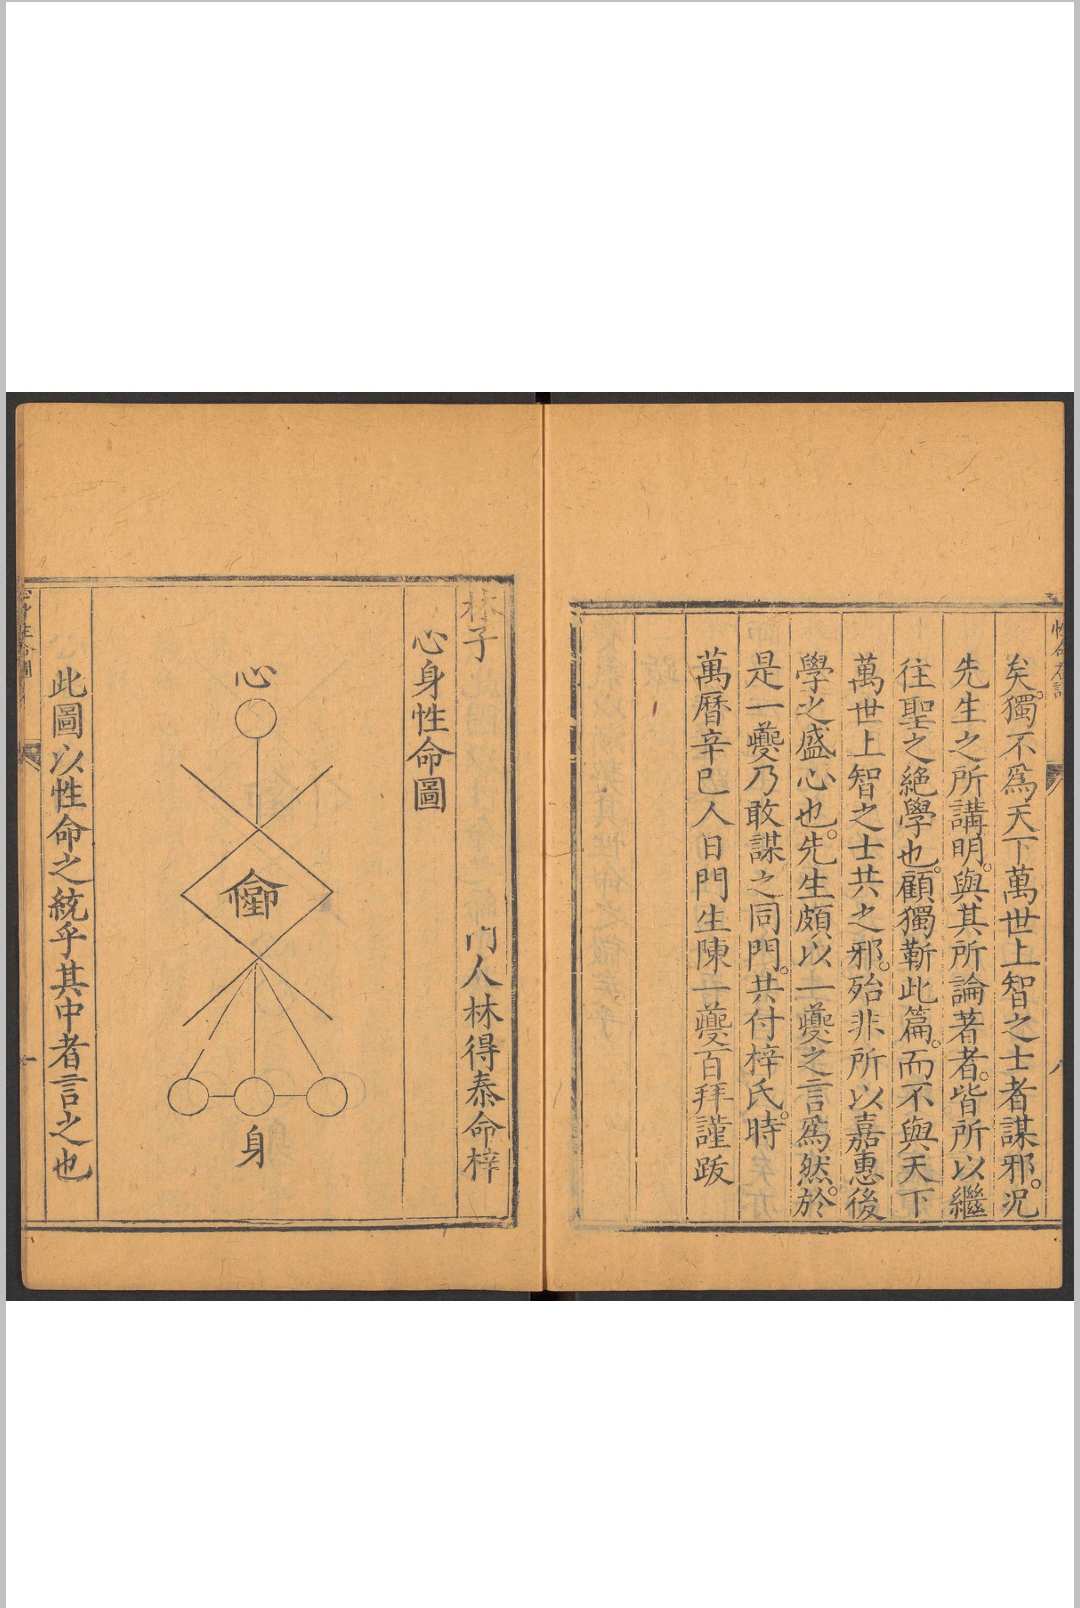 矣。獨不爲天下萬世上智之士者謀邪。况
先生之所講明。與其所論著者。皆所以繼
往聖之絶學也。顧獨靳此篇。而不與天下
萬世上智之士共之邪。殆非所以嘉惠後
學之盛心也。先生頗以一夔之言爲然。於
是一夔乃敢謀之同門。共付梓氏。時
萬曆辛巳人日門生陳一夔百拜謹跋
林子
門人林得泰命梓
心身性命圖
心
身
此圖以性命之統乎其中者言之也